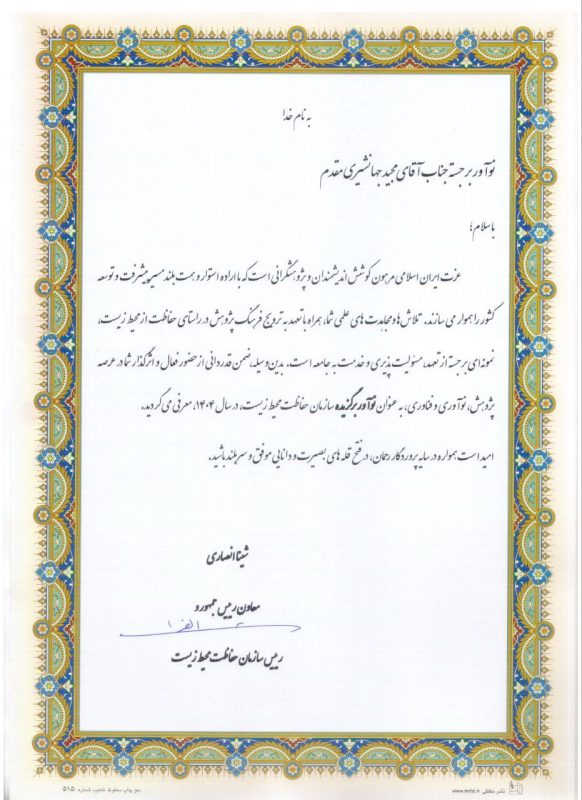 به نام خدا
نوآور برجسته جناب آقای مجید جهانشیری مقدم
با سلام؛
عزت ایران اسلامی مرهون کوشش اندیشمندان و پژوهشگرانی است که با اراده استوار و همت بلند مسیر پیشرفت و توسعه
کشور را هموار می سازند. تلاش ها و مجاهدت های علمی شما، همراه با تعهد به ترویج فرهنگ پژوهش در راستای حفاظت از محیط زیست،
نمونه ای برجسته از تعهد، مسئولیت پذیری و خدمت به جامعه است. بدین وسیله، ضمن قدردانی از حضور فعال و اثرگذار شما در عرصه
پژوهش، نوآوری و فناوری، به عنوان نوآور برگزیده سازمان حفاظت محیط زیست، در سال ۱۴۰۴، معرفی می گردید.
امید است همواره در سایه پروردگار رحمان، در فتح قله های بصیرت و دانایی موفق و سربلند باشید.
شینا انصاری
معاون رییس جمهور و
رییس سازمان حفاظت محیط زیست
حق چاپ محفوظ. تذهیب شماره: ۵۱۵
www.hefzi.ir نشر حفظی